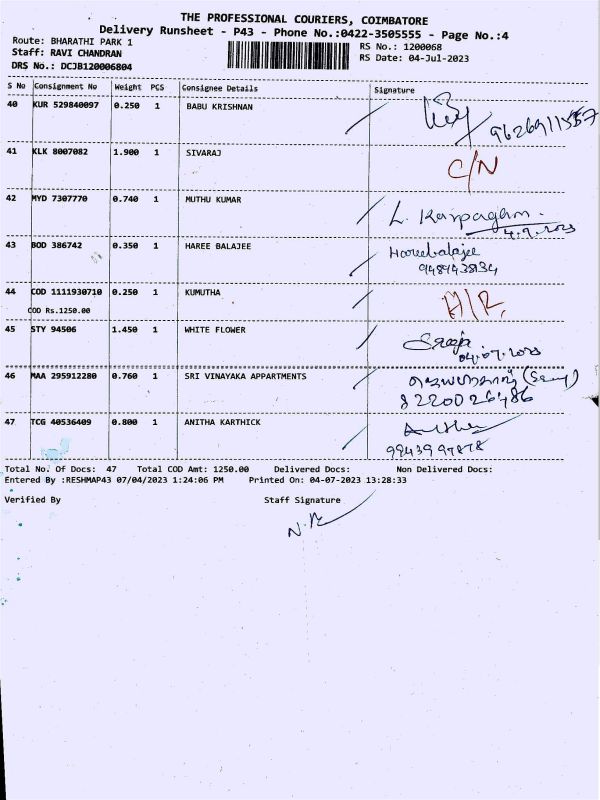 THE PROFESSIONAL COURIERS, COIMBATORE
Delivery Runsheet - P43 - Phone No.:0422-3505555 - Page No.:4
Route: BHARATHI PARK 1
RS No.: 1200068
Staff: RAVI CHANDRAN
RS Date: 04-Jul-2023
DRS No.: DCJB120006804
S No Consignment No Weight PCS Consignee Details Signature
40 KUR 529840097 0.250 1 BABU KRISHNAN
41 KLK 8007082 1.900 1 SIVARAJ C/N
42 MYD 7307770 0.740 1 MUTHU KUMAR L. Karpagam.
43 BOD 386742 0.350 1 HAREE BALAJEE Hareebalajee
9489438134
44 COD 1111930710 0.250 1 KUMUTHA
COD Rs.1250.00
45 STY 94506 1.450 1 WHITE FLOWER
04.07.2023
46 MAA 295912280 0.760 1 SRI VINAYAKA APPARTMENTS
8220026486
47 TCG 40536409 0.800 1 ANITHA KARTHICK
9943997878
Total No. Of Docs: 47 Total COD Amt: 1250.00 Delivered Docs: Non Delivered Docs:
Entered By :RESHMAP43 07/04/2023 1:24:06 PM Printed On: 04-07-2023 13:28:33
Verified By Staff Signature